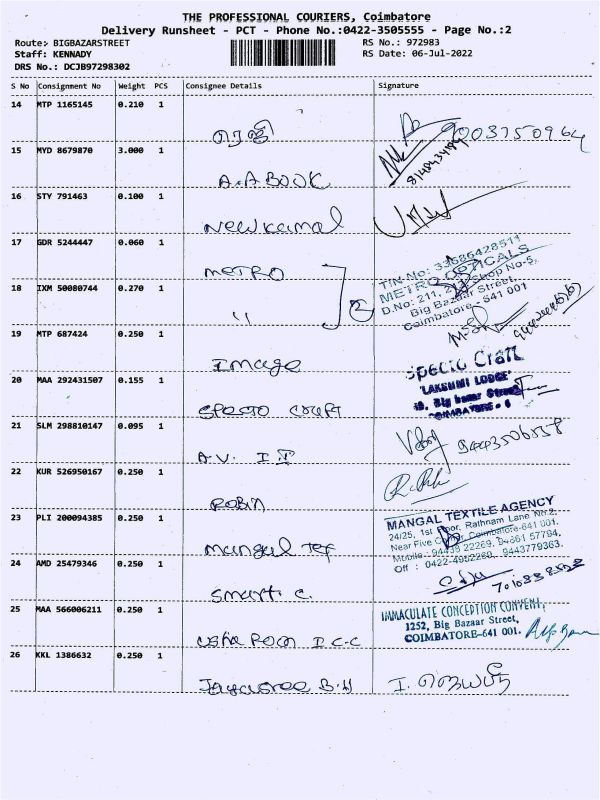 THE PROFESSIONAL COURIERS, Coimbatore
Delivery Runsheet - PCT - Phone No.:0422-3505555 - Page No.:2
Route: BIGBAZARSTREET
RS No.: 972983
Staff: KENNADY
RS Date: 06-Jul-2022
DRS No.: DCJB97298302
S No Consignment No Weight PCS Consignee Details Signature
14 MTP 1165145 0.210 1
ரெஜி
15 MYD 8679870 3.000 1
A.A BOOK
16 STY 791463 0.100 1
New Kamal
17 GDR 5244447 0.060 1
METRO
TIN No: 33686428511
METRO OPTICALS
D.No: 211, Shop No-5,
Big Bazaar Street,
Coimbatore - 641 001
18 IXM 50080744 0.270 1
" 2
19 MTP 687424 0.250 1
Image
20 MAA 292431507 0.155 1
Specto Craft
Specto Craft
'LAKSHMI LODGE'
Big bazar Street
COIMBATORE - 1
21 SLM 298810147 0.095 1
A.V.
9443506558
22 KUR 526950167 0.250 1
Robin
23 PLI 200094385 0.250 1
Mangal Tex
MANGAL TEXTILE AGENCY
24/25, 1st Floor, Rathnam Lane No.2,
Near Five Corner, Coimbatore-641 001.
Mobile : 94438 22269, 94861 57794,
Off : 0422-4952280, 9443779363.
24 AMD 25479346 0.250 1
Smart C.
25 MAA 566006211 0.250 1
Usha Rani I C.C
IMMACULATE CONCEPTION CONVENT,
1252, Big Bazaar Street,
COIMBATORE-641 001.
26 KKL 1386632 0.250 1
Jayasree B.H
I. ஜெயஸ்ரீ